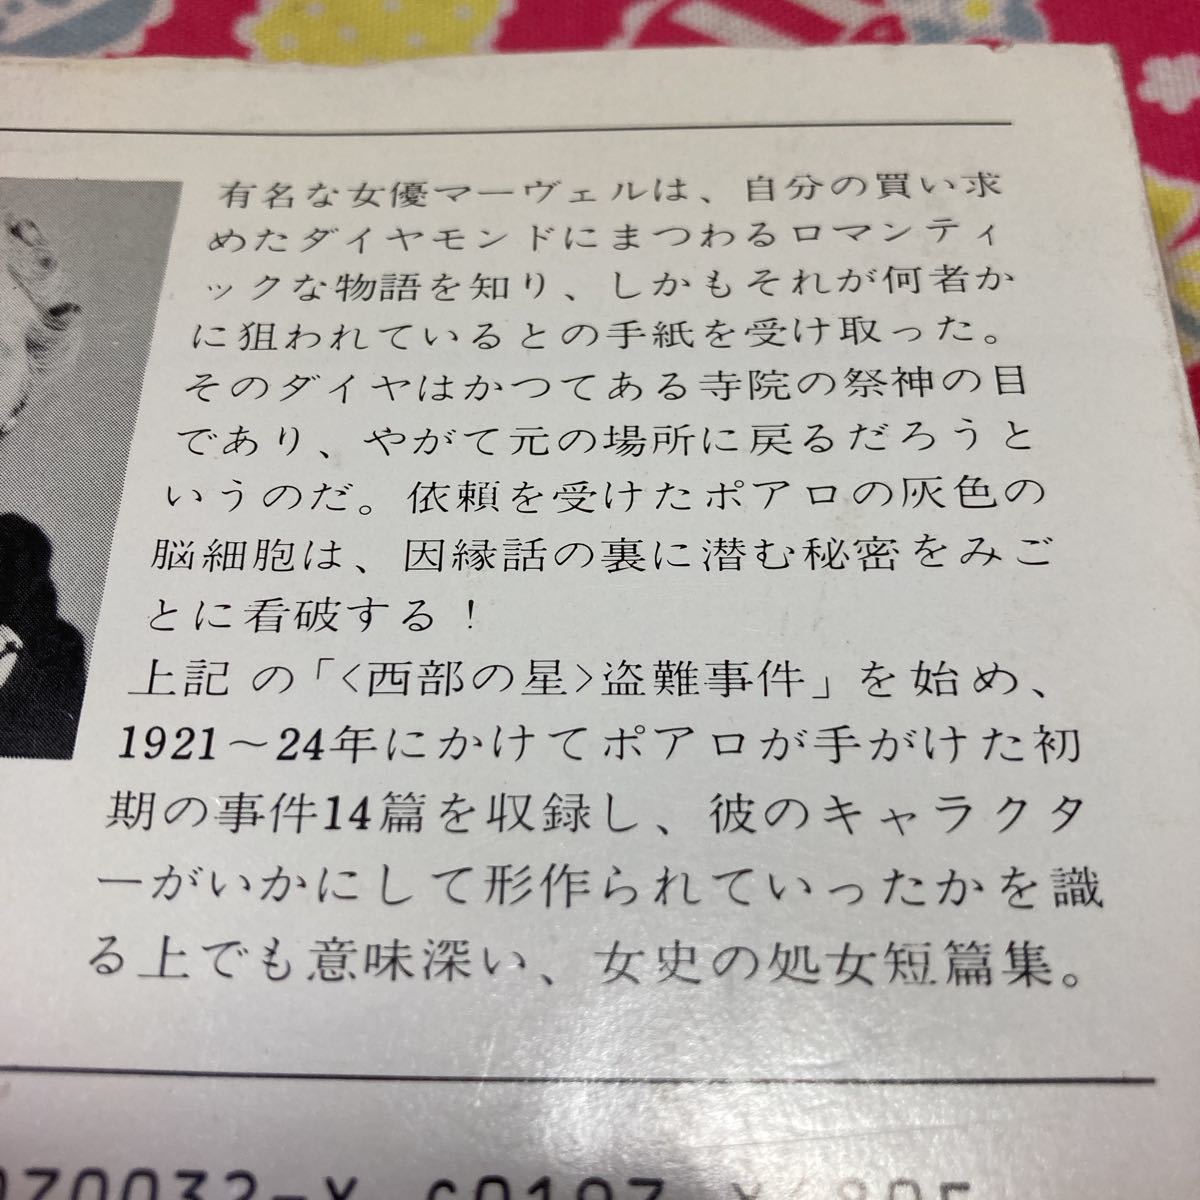 有名な女優マーヴェルは、自分の買い求
めたダイヤモンドにまつわるロマンティ
ックな物語を知り、しかもそれが何者か
に狙われているとの手紙を受け取った。
そのダイヤはかつてある寺院の祭神の目
であり、やがて元の場所に戻るだろうと
いうのだ。依頼を受けたポアロの灰色の
脳細胞は、因縁話の裏に潜む秘密をみご
とに看破する！
上記の「〈西部の星〉盗難事件」を始め、
1921～24年にかけてポアロが手がけた初
期の事件14篇を収録し、彼のキャラクタ
ーがいかにして形作られていったかを識
る上でも意味深い、女史の処女短篇集。
070032-X C0197